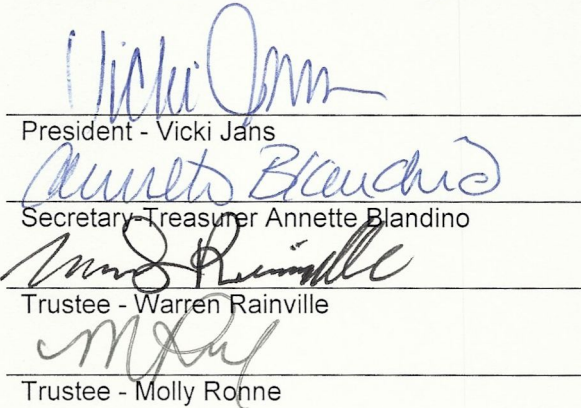 Vicki Jans
President - Vicki Jans
Annette Blandino
Secretary-Treasurer Annette Blandino
Rainville
Trustee - Warren Rainville
Trustee - Molly Ronne